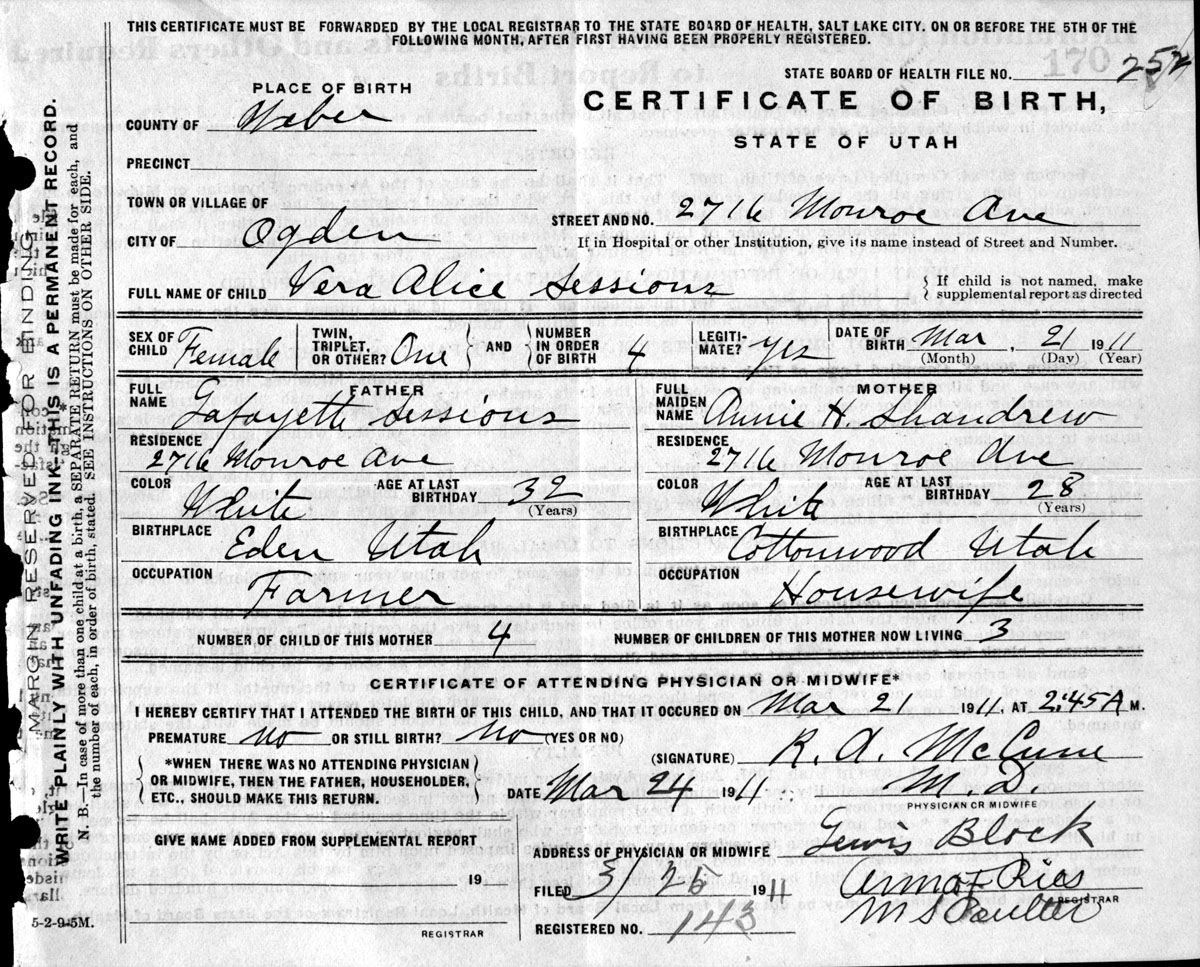 THIS CERTIFICATE MUST BE FORWARDED BY THE LOCAL REGISTRAR TO THE STATE BOARD OF HEALTH, SALT LAKE CITY. ON OR BEFORE THE 5TH OF THE
FOLLOWING MONTH, AFTER FIRST HAVING BEEN PROPERLY REGISTERED.
STATE BOARD OF HEALTH FILE NO. 252
170
PLACE OF BIRTH
CERTIFICATE OF BIRTH,
STATE OF UTAH
COUNTY OF Weber
PRECINCT
TOWN OR VILLAGE OF
STREET AND NO. 2716 Monroe Ave
CITY OF Ogden
If in Hospital or other Institution, give its name instead of Street and Number.
FULL NAME OF CHILD Vera Alice Sessions
If child is not named, make
supplemental report as directed
SEX OF CHILD Female TWIN, TRIPLET, OR OTHER? One AND NUMBER IN ORDER OF BIRTH 4 LEGITI-MATE? Yes DATE OF BIRTH Mar, 21 1911
(Month) (Day) (Year)
FATHER
FULL NAME Lafayette Sessions
RESIDENCE
2716 Monroe Ave
COLOR White AGE AT LAST BIRTHDAY 32
(Years)
BIRTHPLACE
Eden Utah
OCCUPATION
Farmer
MOTHER
FULL MAIDEN NAME Annie H. Shandrew
RESIDENCE
2716 Monroe Ave
COLOR White AGE AT LAST BIRTHDAY 28
(Years)
BIRTHPLACE
Cottonwood Utah
OCCUPATION
Housewife
NUMBER OF CHILD OF THIS MOTHER 4 NUMBER OF CHILDREN OF THIS MOTHER NOW LIVING 3
CERTIFICATE OF ATTENDING PHYSICIAN OR MIDWIFE*
I HEREBY CERTIFY THAT I ATTENDED THE BIRTH OF THIS CHILD, AND THAT IT OCCURED ON Mar 21 1911, AT 2:45 A M.
PREMATURE No OR STILL BIRTH? No (YES OR NO)
(SIGNATURE) R. A. McCune
*WHEN THERE WAS NO ATTENDING PHYSICIAN
OR MIDWIFE, THEN THE FATHER, HOUSEHOLDER,
ETC., SHOULD MAKE THIS RETURN.
DATE Mar 24 1911 M. D.
PHYSICIAN OR MIDWIFE
GIVE NAME ADDED FROM SUPPLEMENTAL REPORT
19
REGISTRAR
ADDRESS OF PHYSICIAN OR MIDWIFE Lewis Block
FILED 3/25 1911
REGISTRAR
REGISTERED NO. 143
5-2-9-5M.
MARGIN RESERVED FOR BINDING
WRITE PLAINLY WITH UNFADING INK-THIS IS A PERMANENT RECORD.
N. B.—In case of more than one child at a birth, a SEPARATE RETURN must be made for each, and
the number of each, in order of birth, stated. SEE INSTRUCTIONS ON OTHER SIDE.